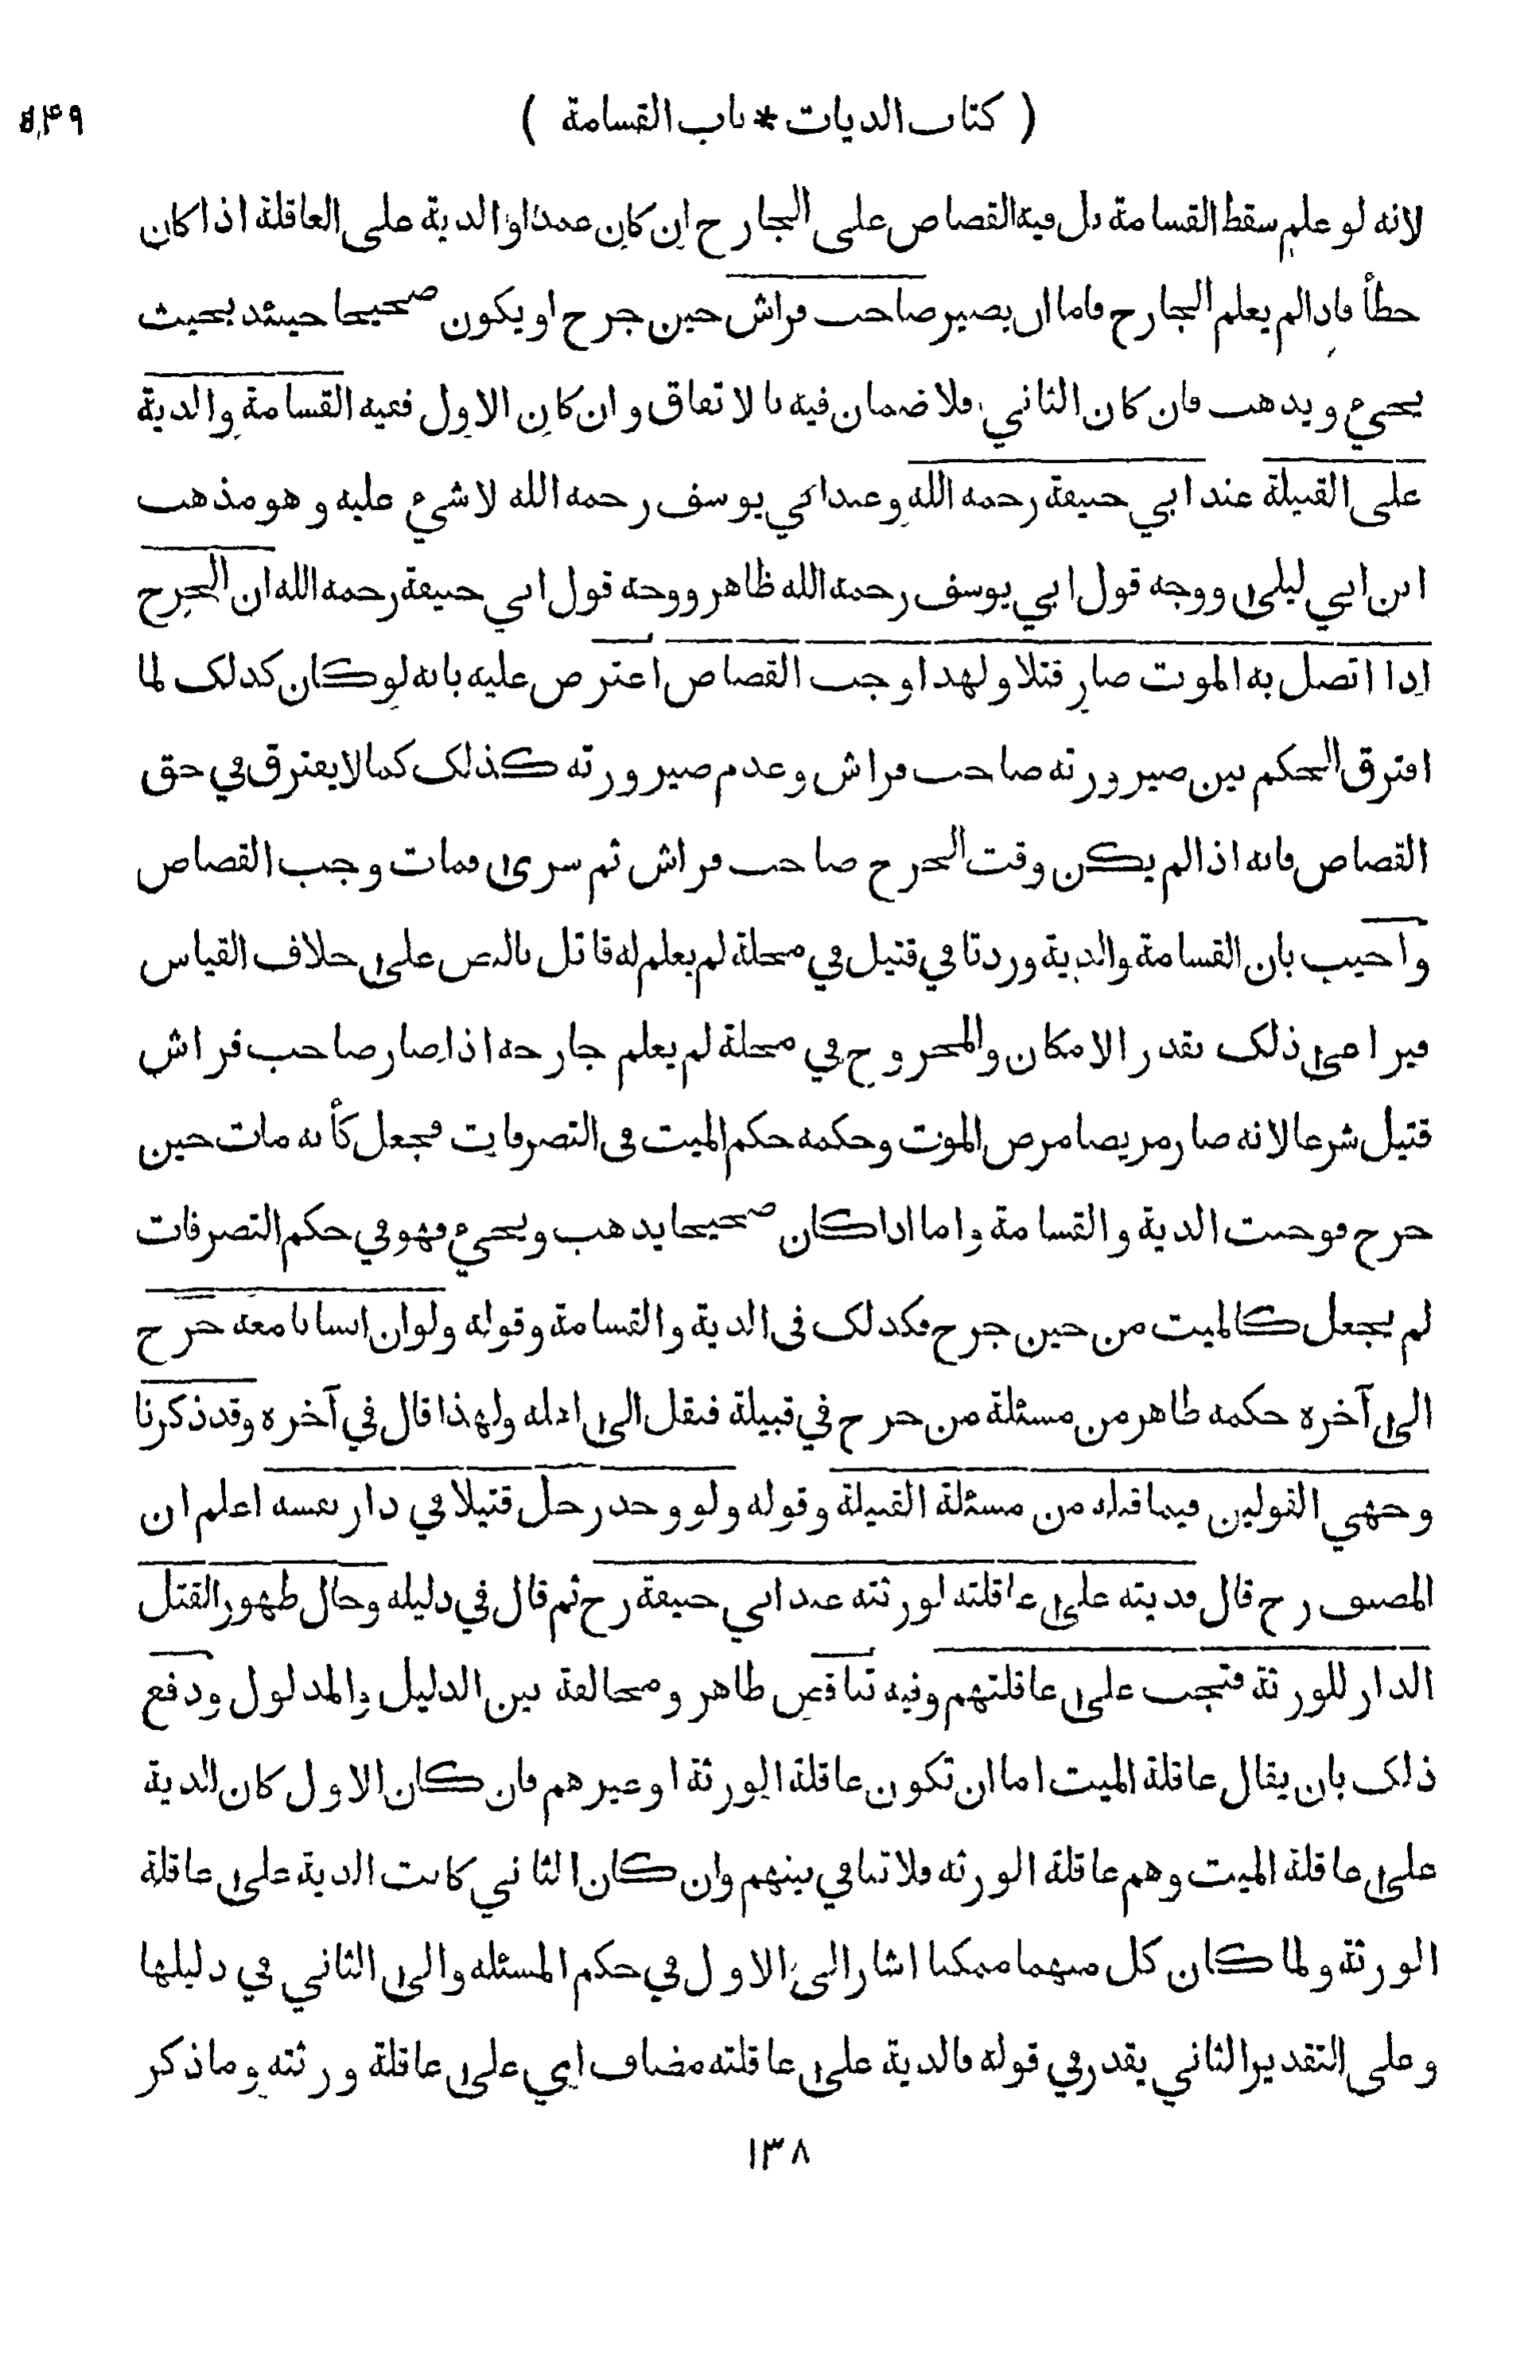 ( كتاب الديات * باب القسامة ) ٥٤٩
لانه لو علم سقط القسامة بل فيه القصاص على الجارح ان كان عمدا او الدية على العاقلة اذا كان
خطأ فاذا لم يعلم الجارح فاما ان يصير صاحب فراش حين جرح او يكون صحيحا حينئذ بحيث
يجيء ويذهب فان كان الثاني فلا ضمان فيه بالاتفاق وان كان الاول ففيه القسامة والدية
على القبيلة عند ابي حنيفة رحمه الله وعند ابي يوسف رحمه الله لا شيء عليه وهو مذهب
ابن ابي ليلى ووجه قول ابي يوسف رحمه الله ظاهر ووجه قول ابي حنيفة رحمه الله ان الجرح
اذا اتصل به الموت صار قتلا ولهذا وجب القصاص اعترض عليه بانه لو كان كذلك لما
افترق الحكم بين صيرورته صاحب فراش وعدم صيرورته كذلك كما لا يفترق في حق
القصاص فانه اذا لم يكن وقت الجرح صاحب فراش ثم سرى فمات وجب القصاص
واجيب بان القسامة والدية وردتا في قتيل في محلة لم يعلم له قاتل بالنص على خلاف القياس
فيراعى ذلك بقدر الامكان والمجروح في محلة لم يعلم جارحه اذا صار صاحب فراش
قتيل شرعا لانه صار مريضا مرض الموت وحكمه حكم الميت في التصرفات فجعل كأنه مات حين
جرح فوجبت الدية والقسامة واما اذا كان صحيحا يذهب ويجيء فهو في حكم التصرفات
لم يجعل كالميت من حين جرح فكذلك في الدية والقسامة وقوله ولو ان انسانا معه جرح
الى آخره حكمه ظاهر من مسئلة من جرح في قبيلة فنقل الى اهله ولهذا قال في آخره وقد ذكرنا
وجهي القولين فيما قبله من مسئلة القبيلة وقوله ولو وجد رجل قتيلا في دار نفسه اعلم ان
المصنف رح قال فديته على عاقلته لورثته عند ابي حنيفة رح ثم قال في دليله وحال ظهور القتل
الدار للورثة فتجب على عاقلتهم وفيه تناقض ظاهر ومخالفة بين الدليل والمدلول ودفع
ذلك بان يقال عاقلة الميت اما ان تكون عاقلة الورثة او غيرهم فان كان الاول كان الدية
على عاقلة الميت وهم عاقلة الورثه فلا تنافي بينهم وان كان الثاني كانت الدية على عاقلة
الورثة ولما كان كل منهما ممكنا اشار الى الاول في حكم المسئله والى الثاني في دليلها
وعلى التقدير الثاني يقدر في قوله فالدية على عاقلته مضاف اي على عاقلة ورثته وما ذكر
١٣٨